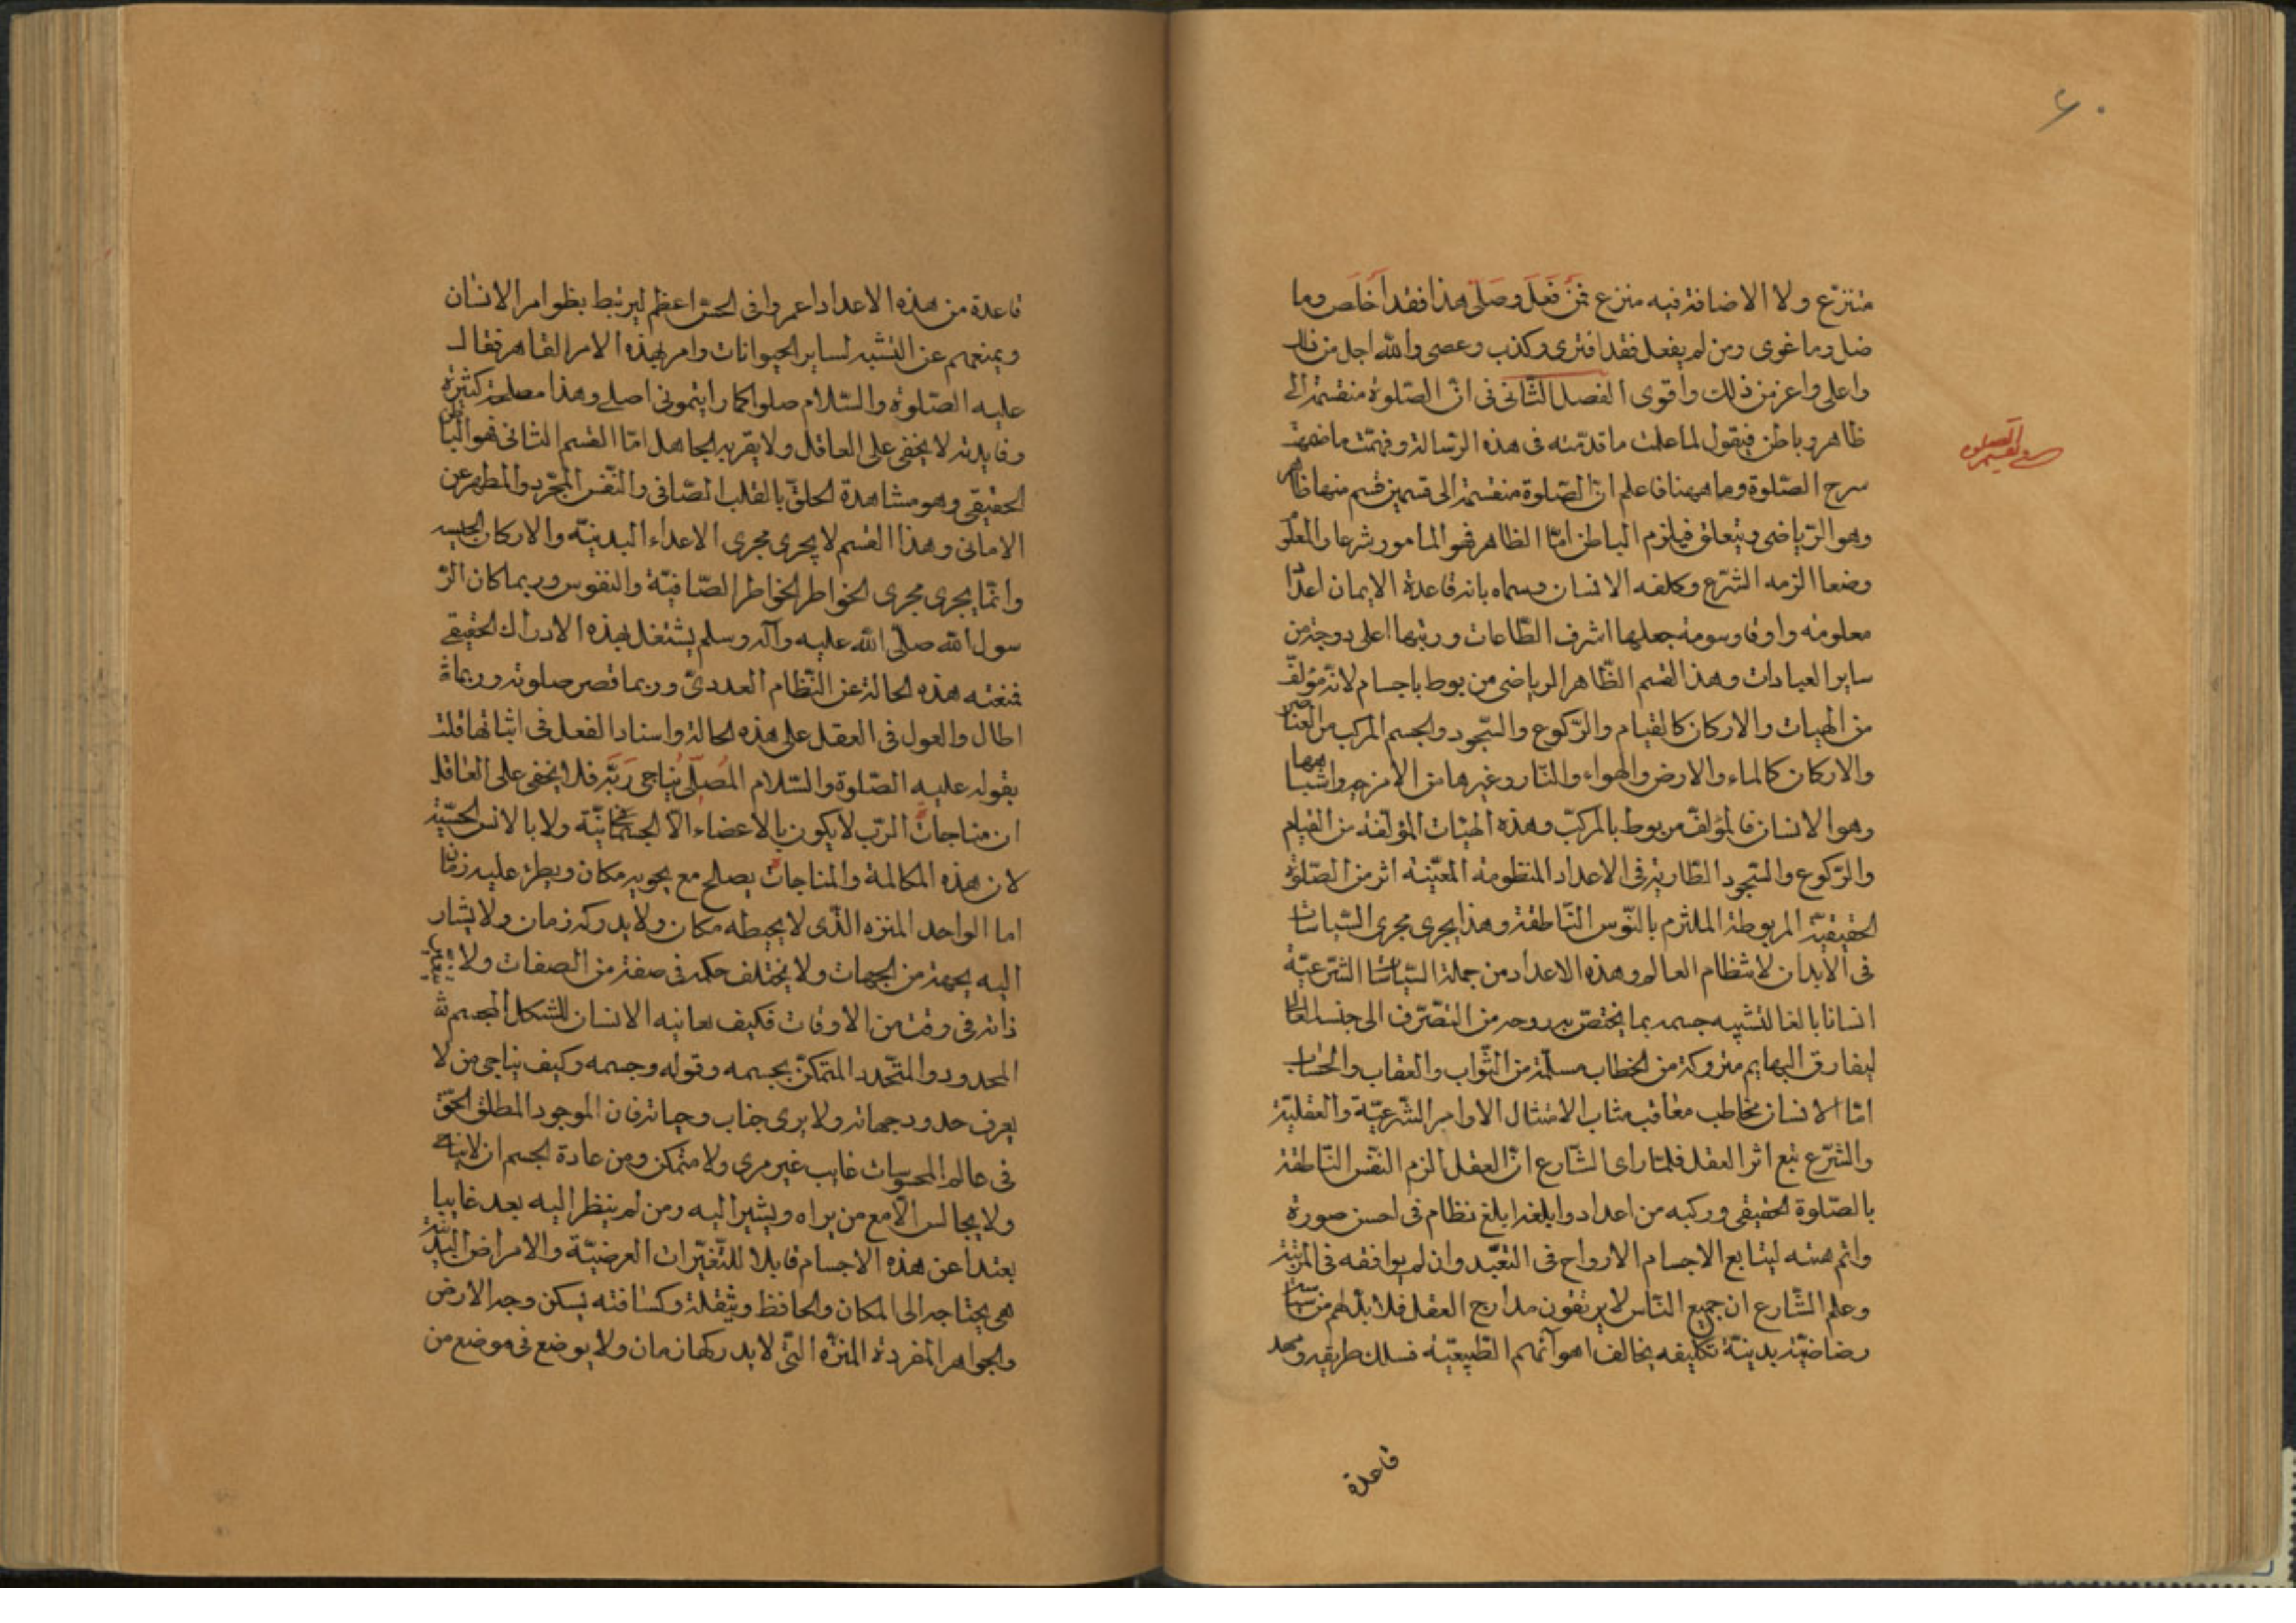 ۶۰
متنزع ولا الاضافة فيه منزع فمن فعل وصلى هذا فقد اخلص وما
ضل وما غوى ومن لم يفعل فقد افترى وكذب وعصى والله اجل من ذلك
واعلى واعز من ذلك واقوى الفصل الثانى فى انّ الصّلوة منقسمة الى
ظاهر وباطن فيقول لما علمت ما قدمته فى هذه الرسالة وفهمت ما ضمنت
سرح الصّلوة وماهيتها فاعلم ان الصّلوة منقسمة الى قسمين قسم منها ظاهر
وهو الرياضى ويتعلق فيلزم الباطن امّا الظاهر فهو المامور شرعا والمعلوم
وضعا الزمه الشرع وكلفه الانسان وسماه بانه قاعدة الايمان اعداد
معلومه واوقا وسومة جعلها اشرف الطّاعات ورتبها اعلى درجة من
ساير العبادات وهذا القسم الظّاهر الرياضى مربوط باجسام لانه مؤلّف
من الهيات والاركان كالقيام والرّكوع والسّجود والجسم المركب من العناصر
والاركان كالماء والارض والهواء والنّار وغيرها من الامزجه واشباهها
وهو الانسان فالمؤلّف مربوط بالمركّب وهذه الهيئات المؤلّفة من القيام
والرّكوع والسّجود الطّارية فى الاعداد المنظومة المعيّنه اثر من الصّلوة
الحقيقيّة المربوطة الملتزم بالنّوس النّاطقة وهذا يجرى مجرى السّياسات
فى الابدان لانتظام العالم وهذه الاعداد من جملة السّياسات الشّرعيّة
انسانا بالغا لتشبيه جسمه بما يختصّ به روحه من التصّرف الى جنسه العالى
ليفارق البهايم متروكة من الخطاب مسلّمة من الثّواب والعقاب والحساب
امّا الانسان مخاطب معاقب مثاب الامتثال الاوامر الشّرعيّة والعقليّة
والشّرع تبع اثر العقل فلمّا راى الشّارع انّ العقل الزم النّفس النّاطقة
بالصّلوة الحقيقى وركبه من اعداد وابلغه ابلغ نظام فى احسن صورة
واتم هيئه ليتابع الاجسام الارواح فى التعّبد وان لم يوافقه فى المرتبة
وعلم الشّارع ان جميع النّاس لا يرتقون مدارج العقل فلا بدّ لهم من سياسة
رضاضيّة بدينيّة تكليفه يخالف اهوآئهم الطّبيعيّه فسلك طريقه ومهد
قاعدة
قاعدة من هذه الاعداد اعمر وا فى الحسّ اعظم ليرتبط بظوامر الانسان
ويمنعهم عن التشبه لساير الحيوانات وامر بهذه الامر القاهر فقال
عليه الصّلوة والسّلام صلوا كما رايتمونى اصلى وهذا مصلحة كثيرة
وفايدته لا يخفى على العاقل ولا يقر به الجاهل امّا القسم الثانى فهو الباطن
الحقيقى وهو مشاهدة الحلقّ بالقلب الصّافى والنّفس المجّرد والمطهر عن
الامانى وهذا القسم لا يجرى مجرى الاعداء البدنيّه والاركان الحسيه
وانّما يجرى مجرى الخواطر الخواطر الصّافيّة والنفوس وربما كان الرّ
سول الله صلّى الله عليه وآله وسلم يشتغل بهذه الادراك الحقيقى
فمنعته هذه الحالة عن النّظام العددىّ وربما قصر صلوته وربما
اطال والعول فى العقل على هذه الحالة واسناد الفعل فى اثباتها قلت
بقوله عليه الصّلوة والسّلام المصلّى يناجى ربّه فلا يخفى على العاقل
ان مناجات الرّب لا يكون بالاعضاء الّا الجسمانيّة ولا بالانس الحسّية
لان هذه المكالمة والمناجات يصلح مع يحويه مكان ويطرء عليه زمان
اما الواحد المنزه الذّى لا يحيطه مكان ولا يدركه زمان ولا يشار
اليه بجهة من الجهات ولا يختلف حكمه فى صفة من الصفات ولا يتغير
ذاته فى وقت من الاوقات فكيف يعاينه الانسان المشكل المجسم
المحدود والمتّحدد المتمكّن بجسمه وقوله وجسمه وكيف يناجى من لا
يعرف حدود جهاته ولا يرى جناب وجياته فان الموجود المطلق الحقّ
فى عالم المحسوسات غايب غير مرى ولا متمكن ومن عادة الجسم ان لا يناجى
ولا يجالس الّا مع من يراه ويشير اليه ومن لم ينظر اليه بعد غايبا
بعتدا عن هذه الاجسام قابلا للتّغيّرات العرضيّة والامراض البدنيّة
هى يحتاجه الى المكان والحافظ وبثقله وكثافته يسكن وجه الارض
والجواهر المفردة المنزّه التى لا يدركها زمان ولا يوضع فى موضع من